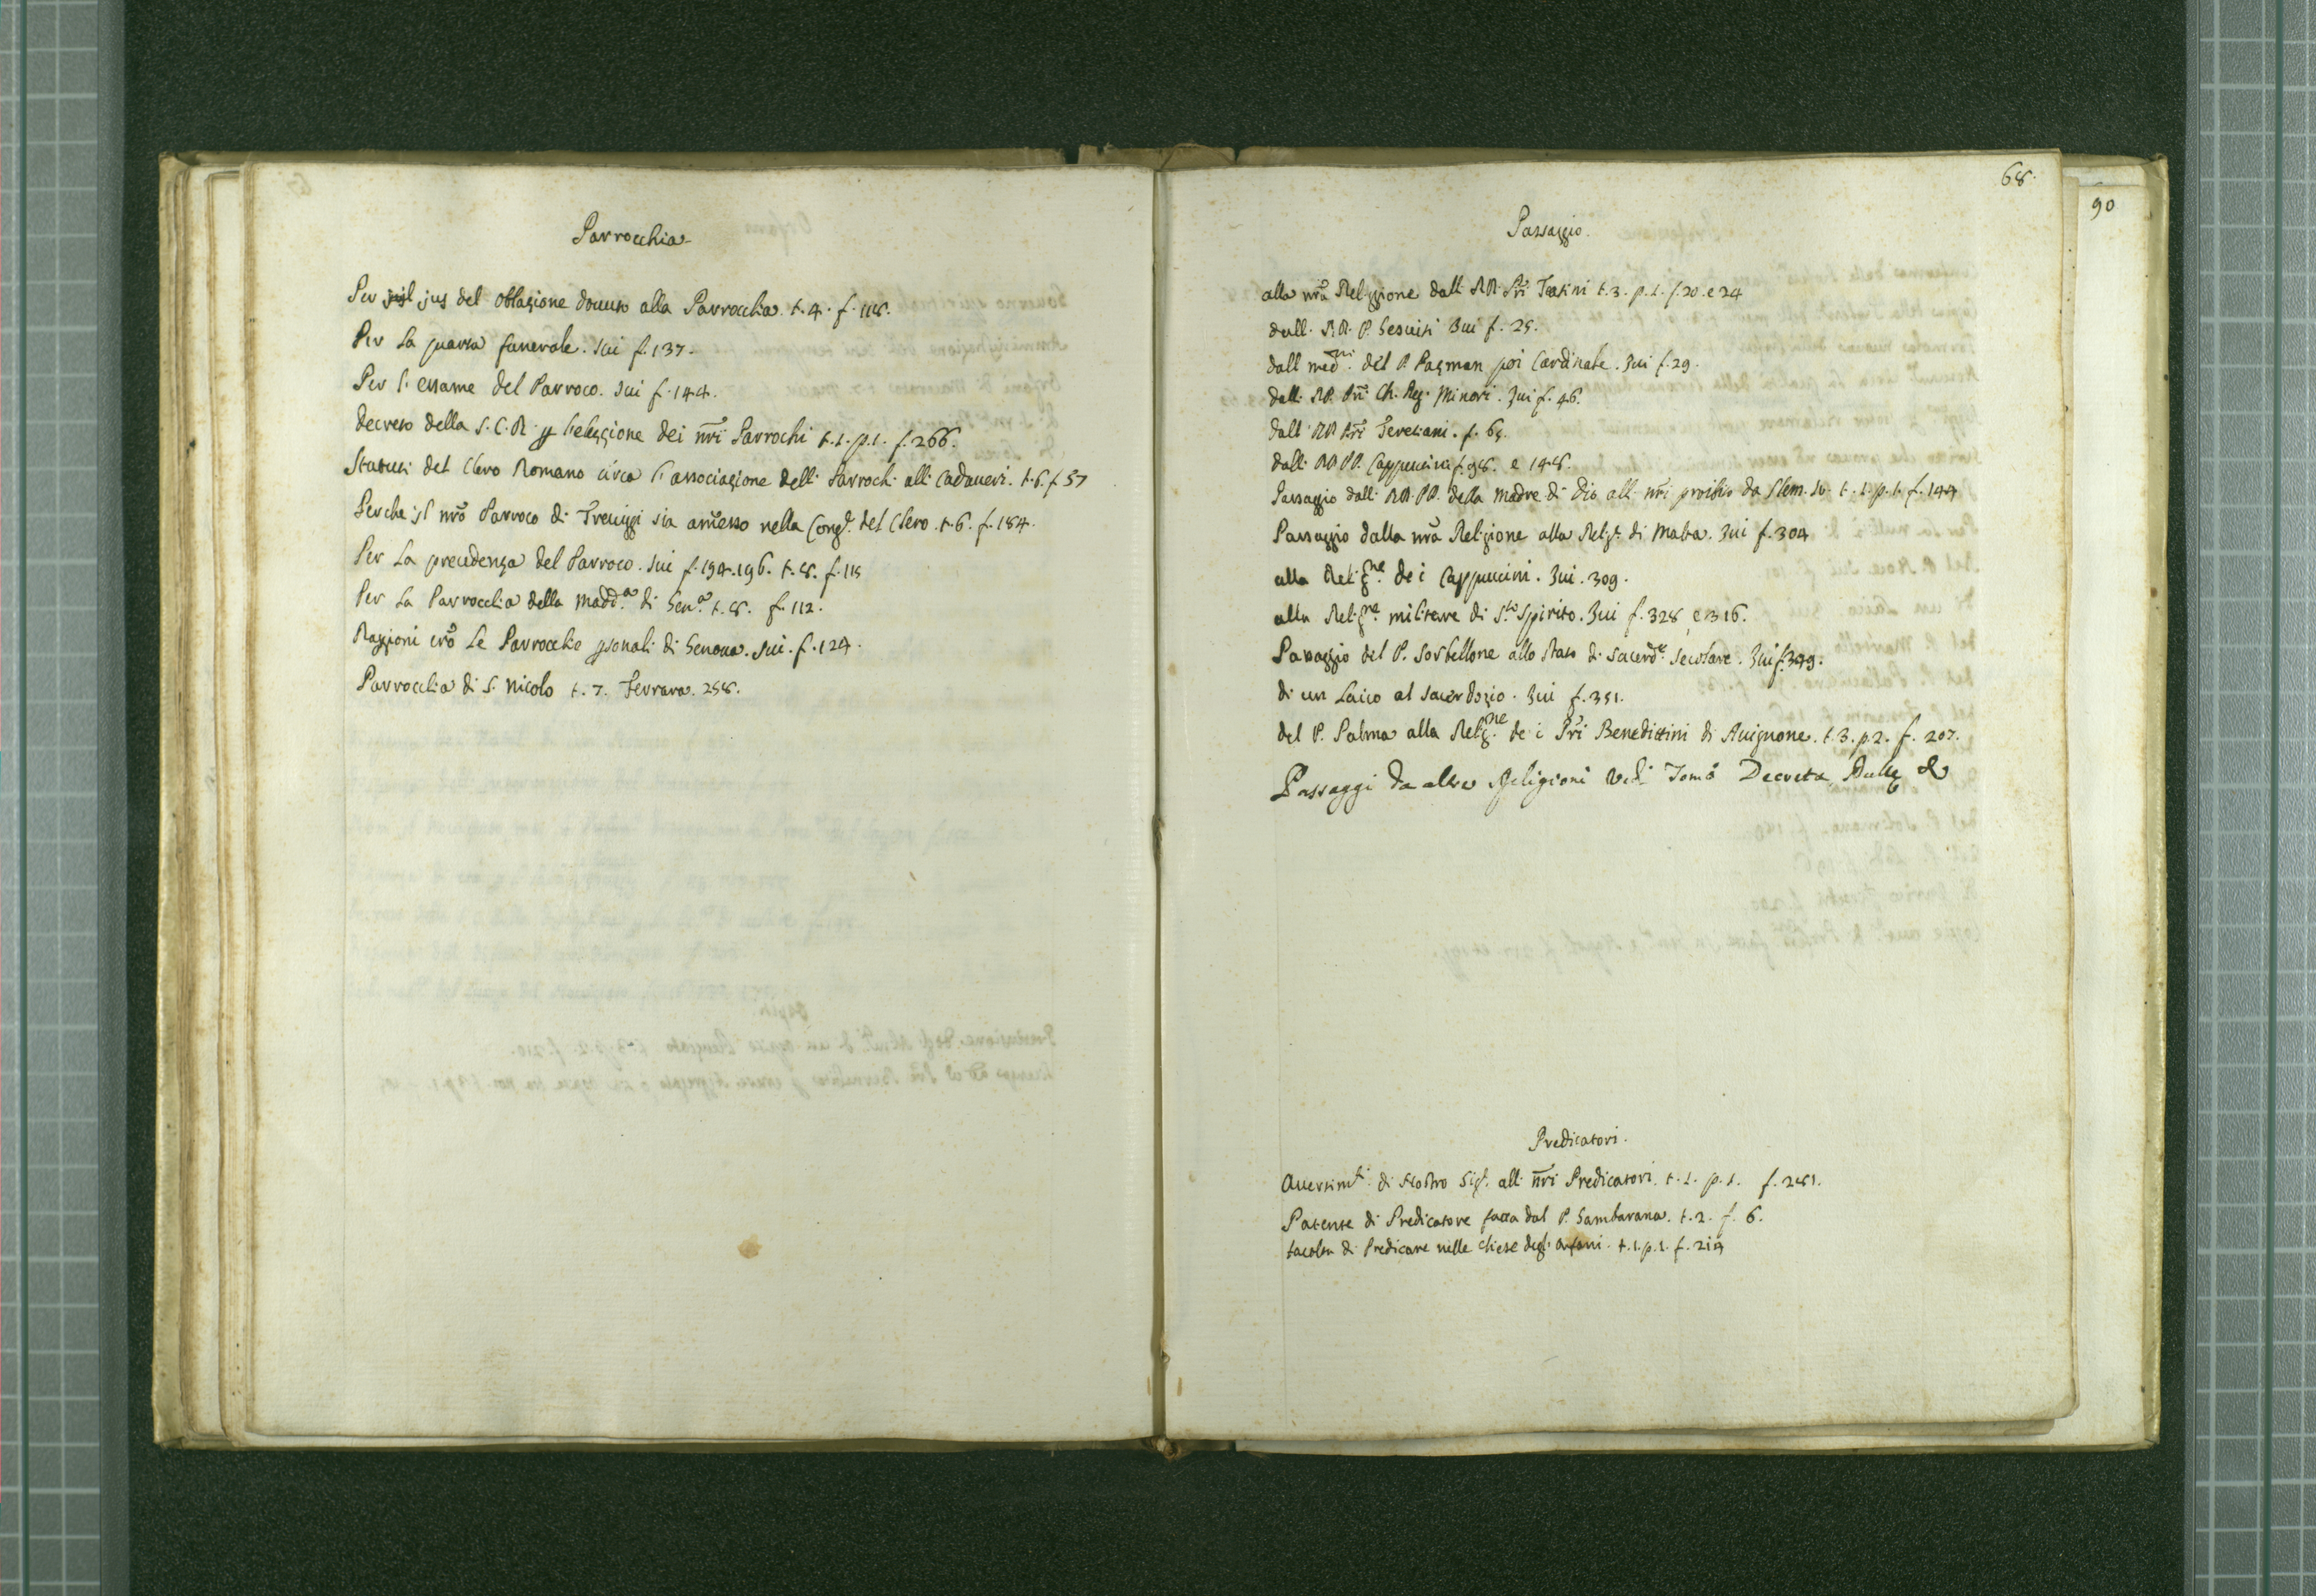 Parrocchia
Per il jus del oblazione dovuto alla Parrocchia. t. 4. f. 118.
Per la quarta funerale. Iui f. 137.
Per l'essame del Parroco. Iui f. 144.
Decreto della S. C. R. p l'elezzione dei nr̃i Parrochi t. 1. p. 1. f. 266.
Statuti del Clero Romano circa l'associazione delli Parrochi alli Cadaueri. t. 6. f. 57
Perche il nrõ Parroco di Treuiggi sia am̃esso nella Congᵉ. del Clero. t. 6. f. 184.
Per la precedenza del Parroco. Iui f. 194. 196. t. 8. f. 115
Per la Parrocchia della Madd.ᵃ di Gen.ᵃ t. 8. f. 112.
Raggioni crõ le Parrocchie psonali di Genoua. Iui. f. 124.
Parrocchia di S. Nicolo t. 7. Ferrara. 258.
68.
90
Passaggio.
alla nrã Religgione dalli RR. Pr̃i Teatini t. 3. p. 1. f. 20. e 24
dalli RR. P. Gesuiti Iui f. 25.
dalli med.ᵐⁱ del P. Pazman poi Cardinale. Iui f. 29.
dalli RR. Pr̃i Ch. Reg. Minori. Iui f. 46.
dalli RR Pr̃i Teresiani. f. 65.
dalli RR PP. Cappuccini f. 98. e 148.
Passaggio dalli RR. PP. della Madre di Dio alli nr̃i proibito da Clem. t. 1. p. 1. f. 144
Passaggio dalla nrã Religione alla Relig.ᵉ di Malta. Iui f. 304
alla Relig.ⁿᵉ dei Cappuccini. Iui. 309.
alla Relig.ⁿᵉ militare di S.ᵗᵒ Spirito. Iui f. 328, e 316.
Passaggio del P. Sorbellone allo stato di sacerdᵗᵉ secolare. Iui f. 349.
di un Laico al sacerdozio. Iui f. 351.
del P. Palma alla Relig.ⁿᵉ dei Pr̃i Benedittini di Auignone. t. 3. p. 2. f. 207.
Passaggi da altre Religioni vedi Tomo Decreta, Bulle &
Predicatori.
Auertimᵗⁱ di Nostro Sigᵉ. alli nr̃i Predicatori. t. 1. p. 1. f. 281.
Patente di Predicatore fatta dal P. Gambarana. t. 2. f. 6.
facolta di Predicare nelle chiese degli orfani. t. 1. p. 1. f. 214